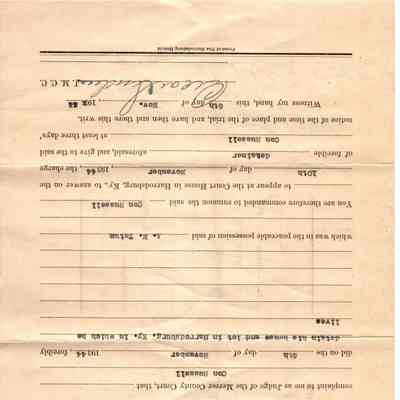 complaint to me as Judge of the Mercer County Court, that
Con Russell
did on the 6th day of November 193 44, forcibly
detain his house and lot in Harrodsburg, Ky. in which he
lives
which was in the peaceable possession of said L. E. Tatum
You are therefore commanded to summon the said Con Russell
to appear at the Court House in Harrodsburg, Ky., to answer on the
10th day of November 193 44, the charge
of forcible detainer aforesaid, and give to the said
Con Russell at least three days'
notice of the time and place of the trial, and have then and there this writ.
Witness my hand, this 6th day of Nov. 193 44
J. M. C. C.
Press of The Harrodsburg Herald